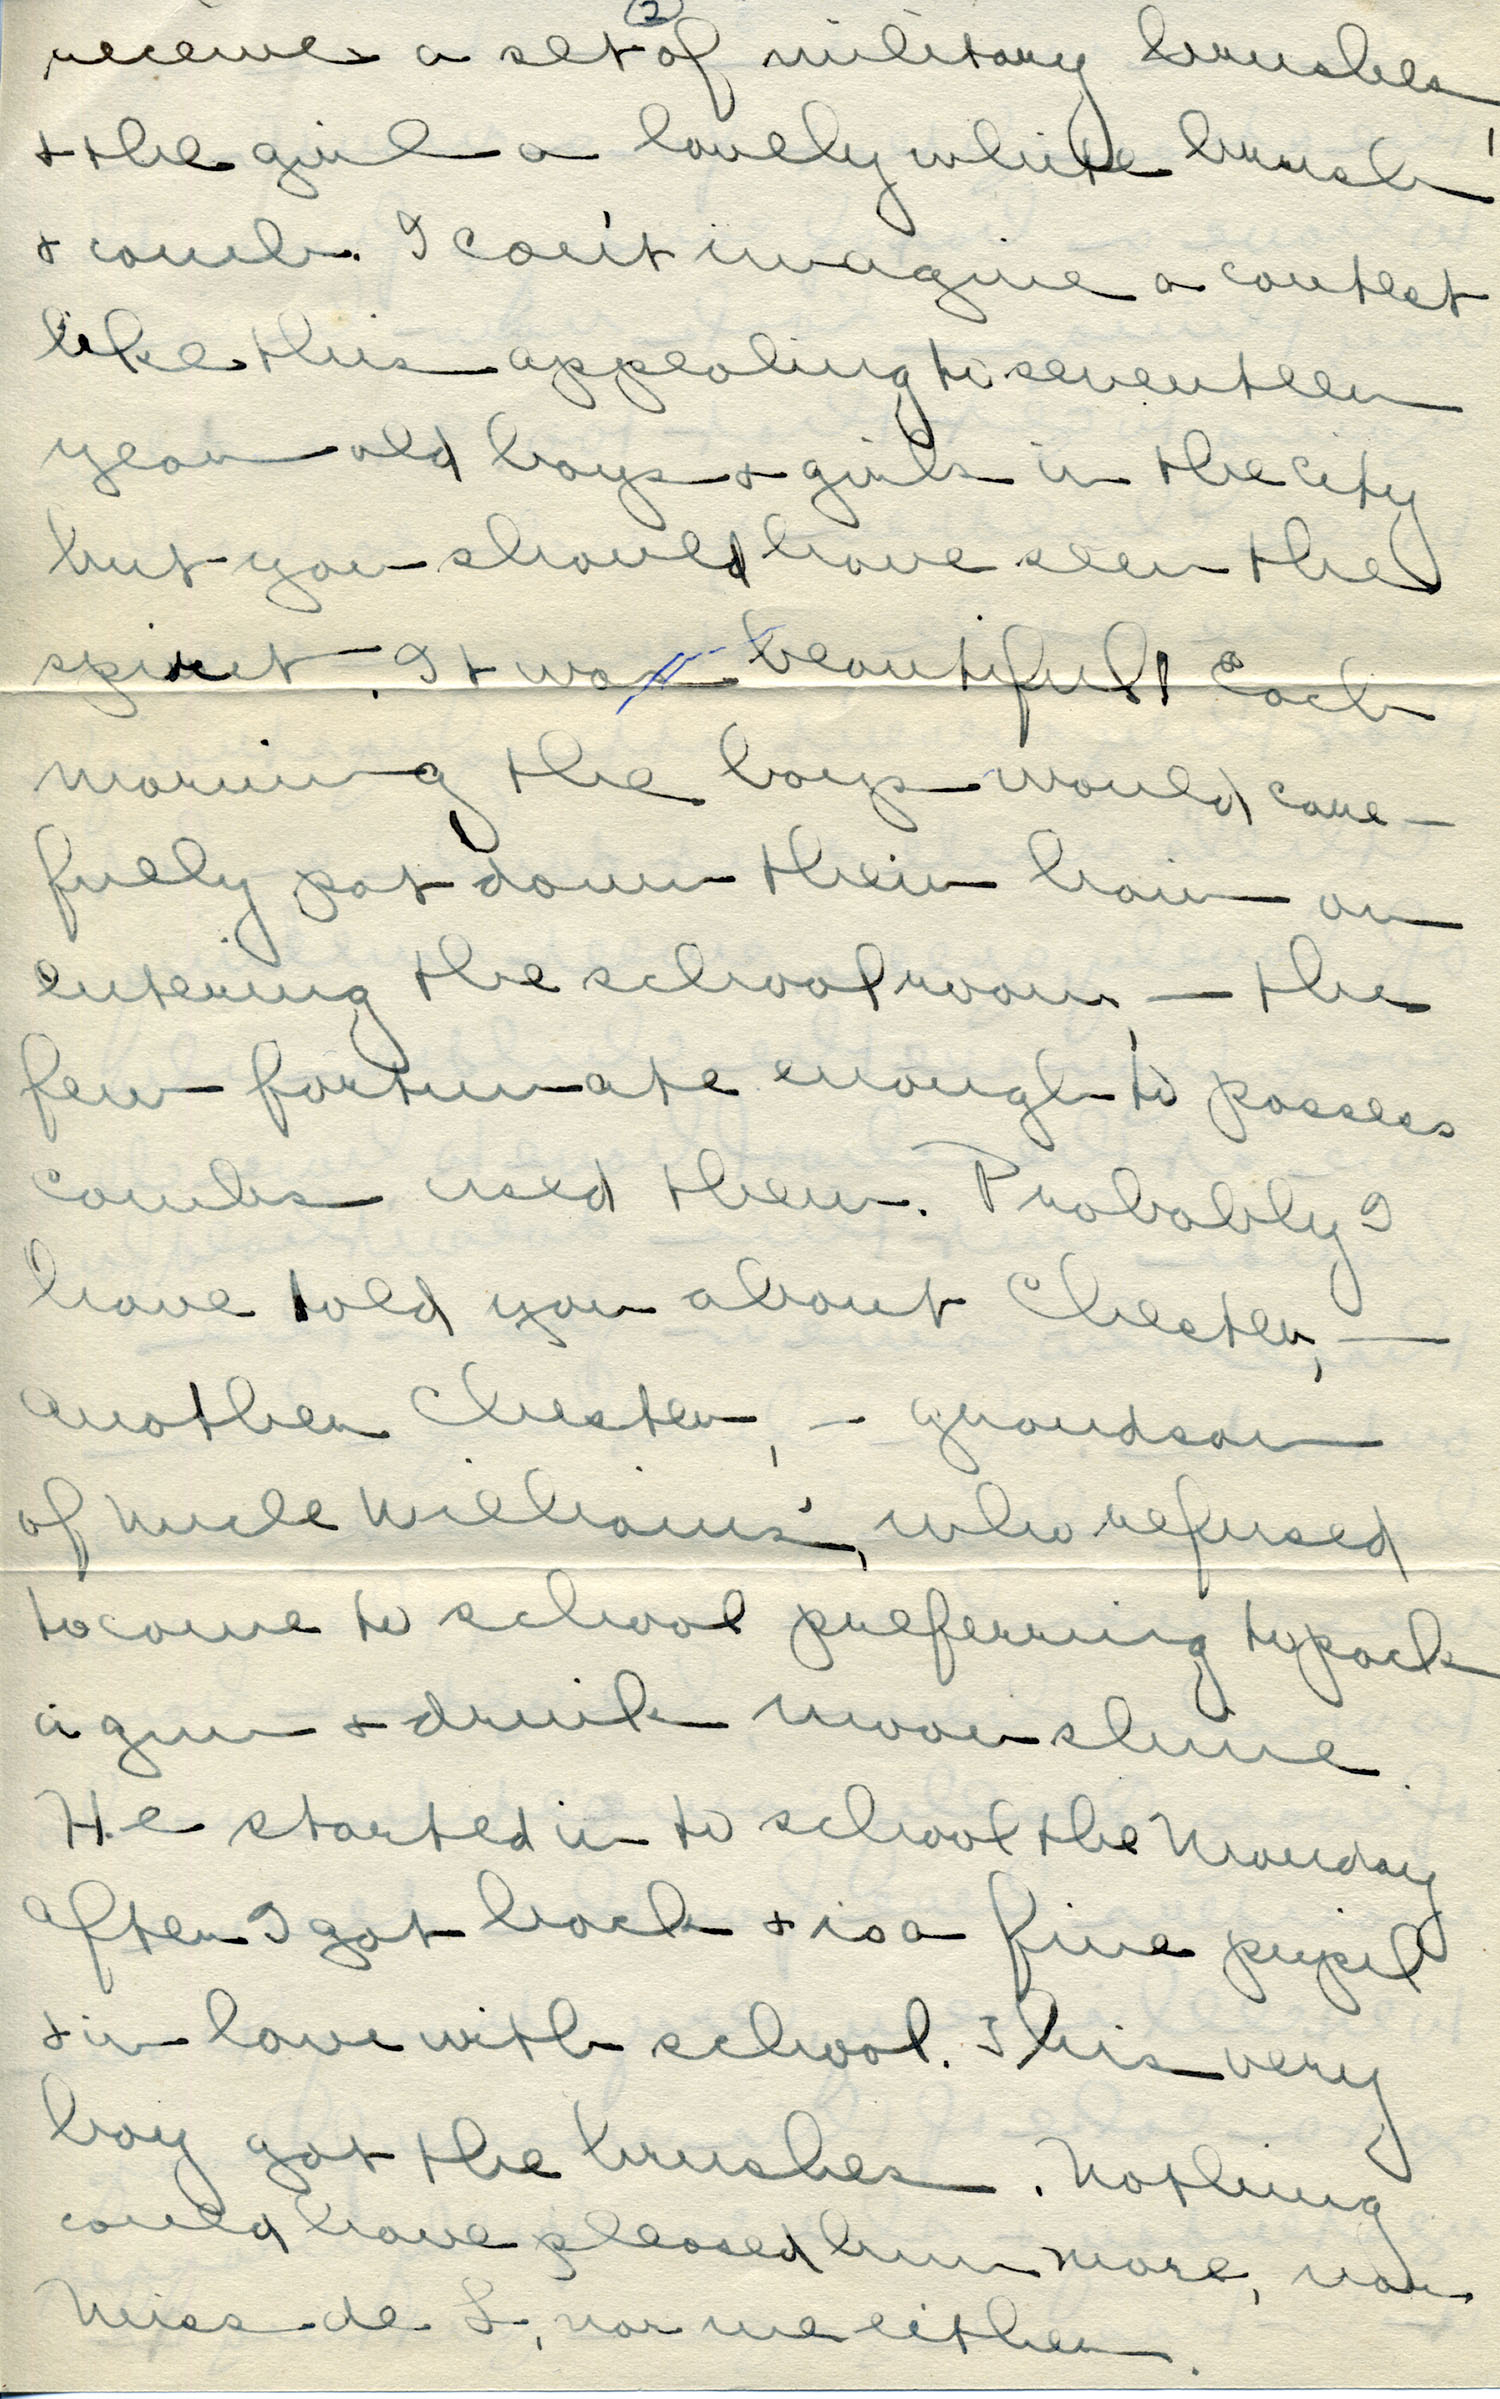 ②
receive a set of military brushes,
+ the girl a lovely white brush
+ comb. I can't imagine a contest
like this appealing to seventeen
year old boys + girls in the city
but you should have seen the
spirit. It was beautiful! Each
morning the boys would care-
fully pat down their hair on
entering the schoolroom, — the
few fortunate enough to possess
combs used them. Probably I
have told you about Chester, —
another Chester, — grandson
of Uncle William's, who refused
to come to school preferring to pack
a gun + drink moonshine.
He started in to school the Monday
after I got back + is a fine pupil
+ in love with school. This very
boy got the brushes. Nothing
could have pleased him more, nor
Miss de L, nor me either.